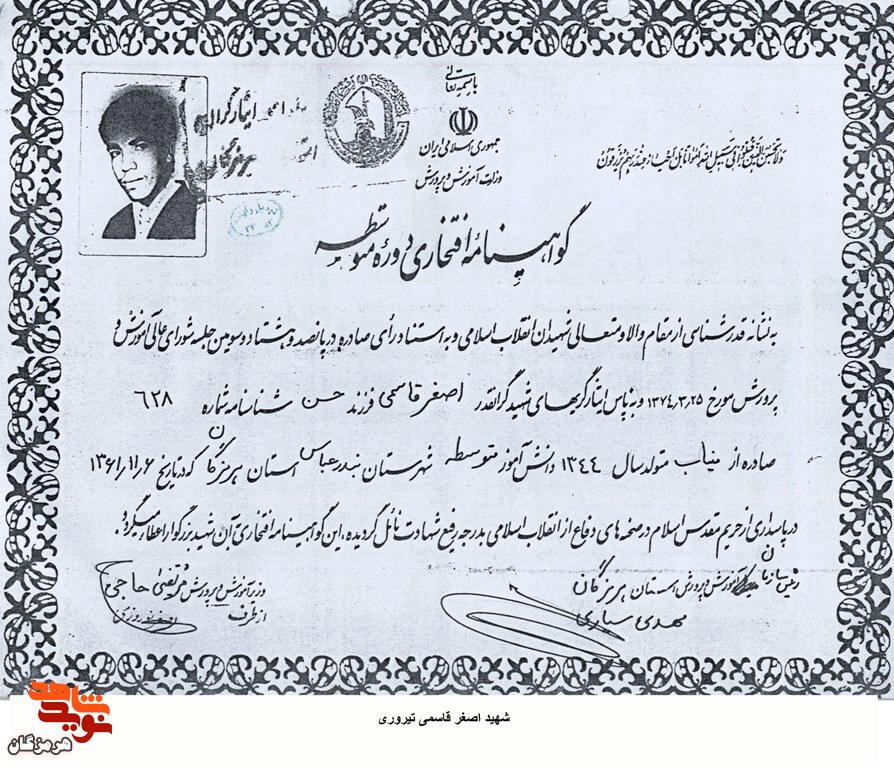 باسمه تعالی
جمهوری اسلامی ایران
وزارت آموزش و پرورش
ولا تحسبن الذین قتلوا فی سبیل الله امواتا بل احیاء عند ربهم یرزقون
گواهینامهٔ افتخاری دورهٔ متوسطه
به نشانه قدرشناسی از مقام والا و متعالی شهیدان انقلاب اسلامی و به استناد رأی صادره در پانصد و هشتاد و سومین جلسه شورای عالی آموزش و
پرورش مورخ ۱۳۷۴٫۳٫۲۵ و به پاس ایثارگریهای شهید گرانقدر اصغر قاسمی فرزند حسن شناسنامه شماره ۶۲۸
صادره از میناب متولد سال ۱۳۴۴ دانش آموز متوسطه شهرستان بندرعباس استان هرمزگان که در تاریخ ۱۳۶۱/۱۱/۶
در پاسداری از حریم مقدس اسلام در صحنه های دفاع از انقلاب اسلامی بدرجه رفیع شهادت نائل گردیده، این گواهینامه افتخاری آن شهید بزرگوار اعطاء میگردد.
رئیس سازمان آموزش و پرورش استان هرمزگان
مهدی ستاری
وزیر آموزش و پرورش مرتضی حاجی
از طرف
شهید اصغر قاسمی تیروری
نوید شاهد
هرمزگان